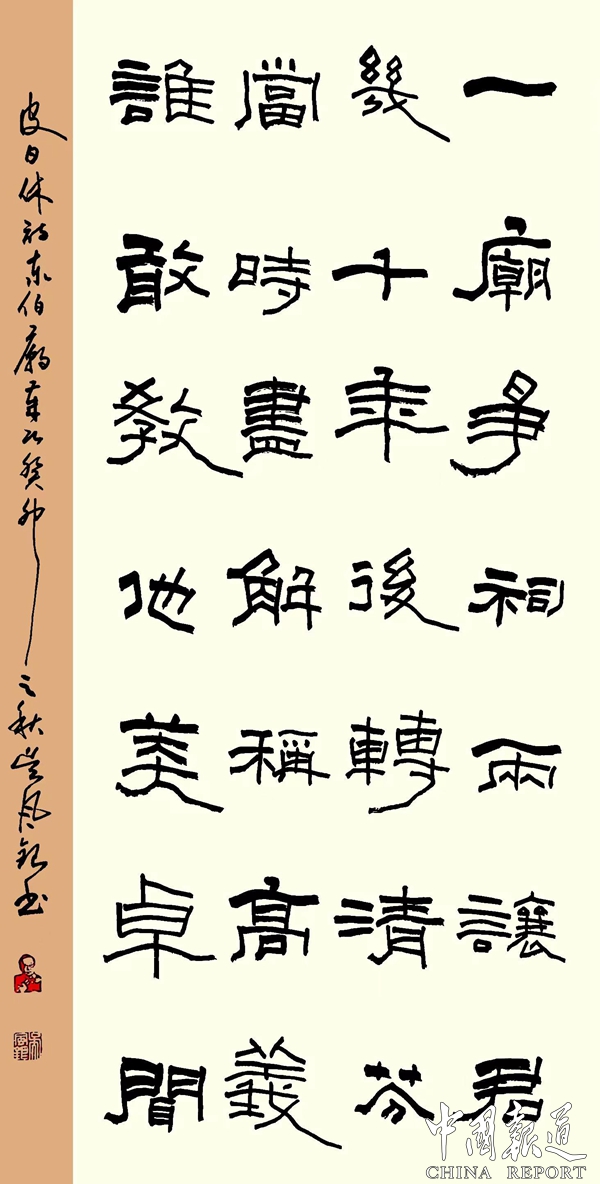 一廟爭祠兩讓君
幾千年後轉清芬
當時盡解稱高義
誰敢教他莽卓聞
皮日休詩泰伯廟 癸卯之秋 书
中國報道
CHINA REPORT